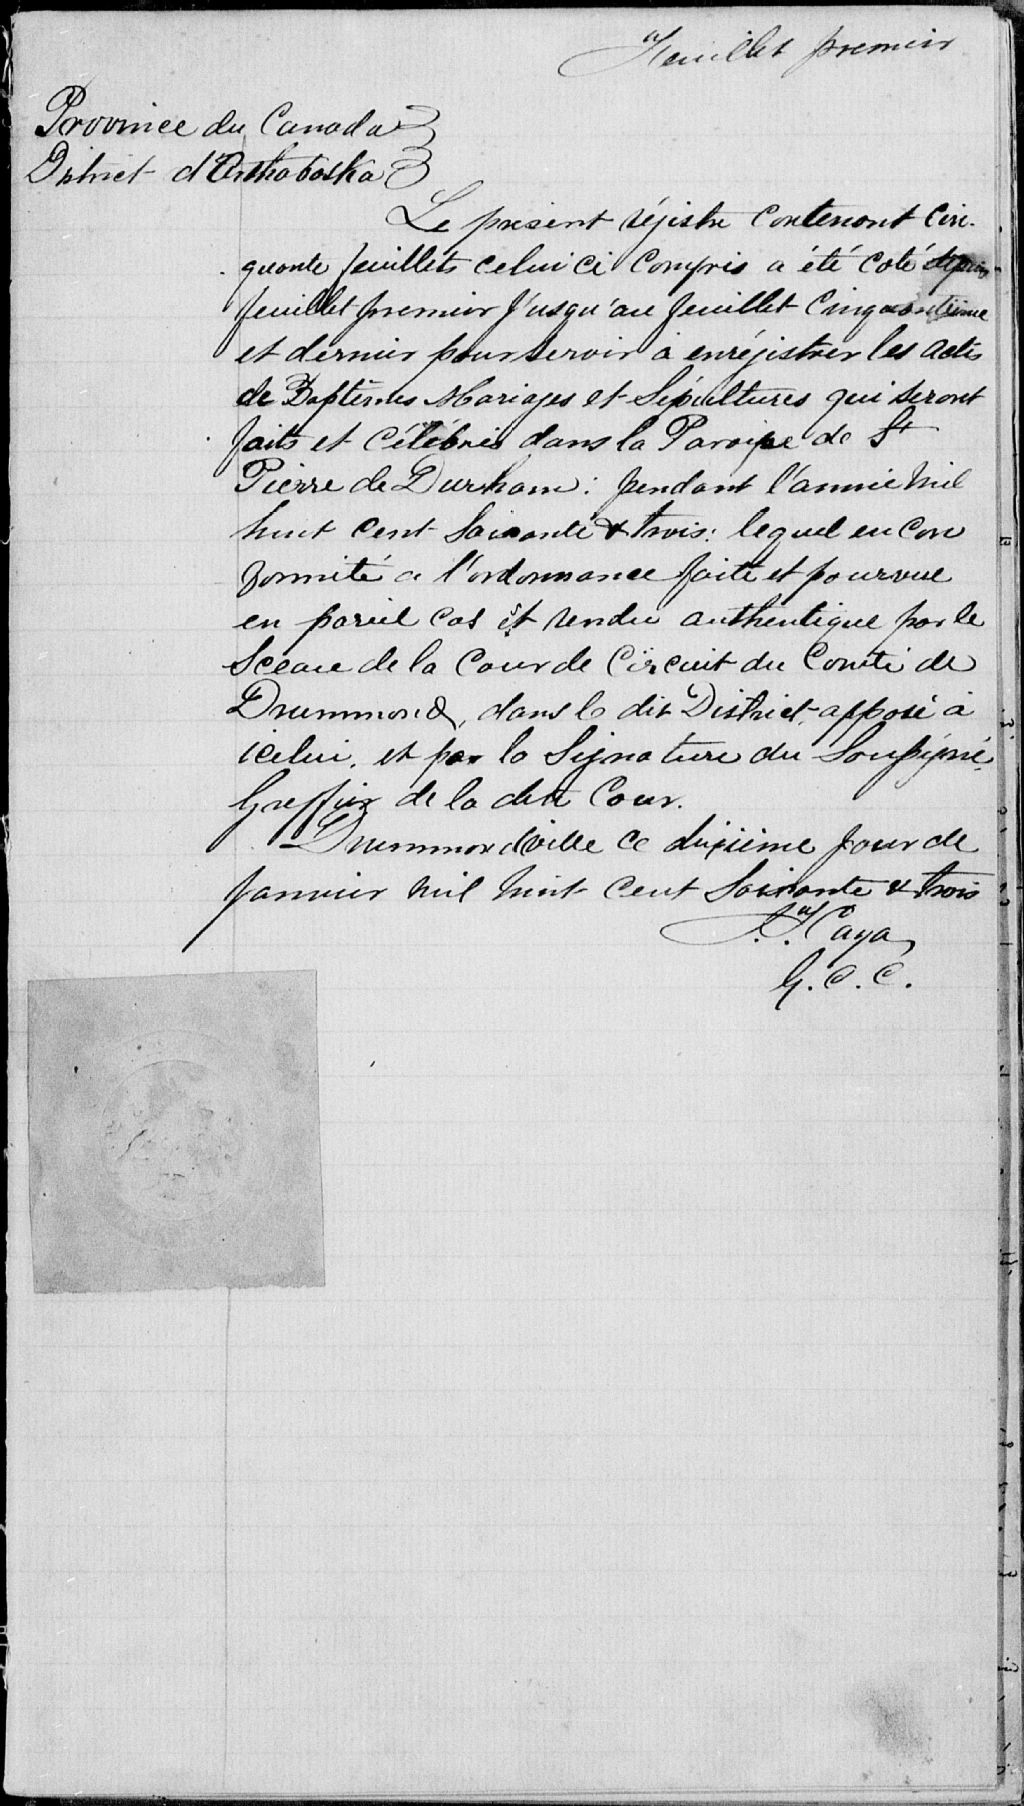 Feuillet premier
Province du Canada
District d'Arthabaska
Le présent régistre contenant cin-
quante feuillets celui ci compris a été coté depuis
feuillet premier jusqu'au feuillet cinquantième
et dernier pour servir à enrégistrer les actes
de Baptêmes Mariages et Sépultures qui seront
faits et célébrés dans la Paroisse de St
Pierre de Durham: pendant l'année mil
huit cent Soixante & trois: lequel en con
formité a l'ordonnance faite et pourvue
en pareil cas est rendu authentique par le
Sceau de la Cour de Circuit du Comté de
Drummond, dans le dit District, apposé à
icelui, et par la Signature du Soussigné
Greffier de la dite Cour.
Drummondville ce dixième jour de
Janvier mil huit cent Soixante & trois
Caya
G. C. C.